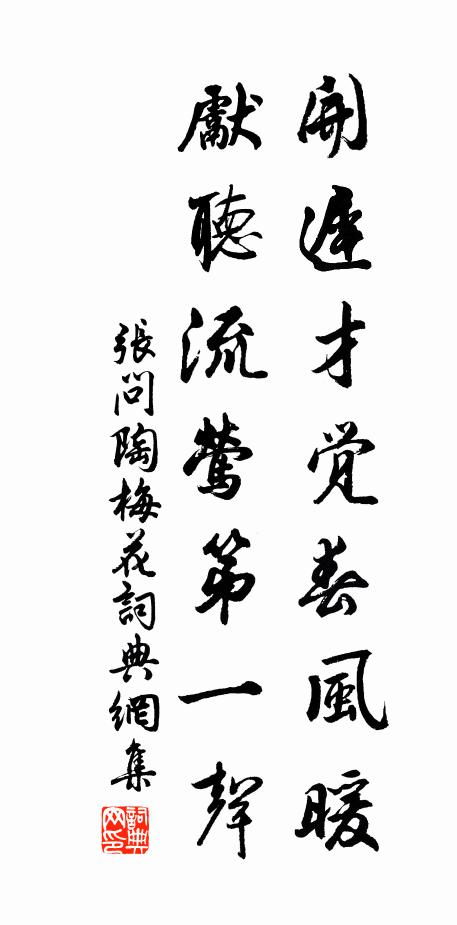 開遲才覺春風暖
獻聽流鶯第一聲
張問陶梅花詞典網集
詞典網印